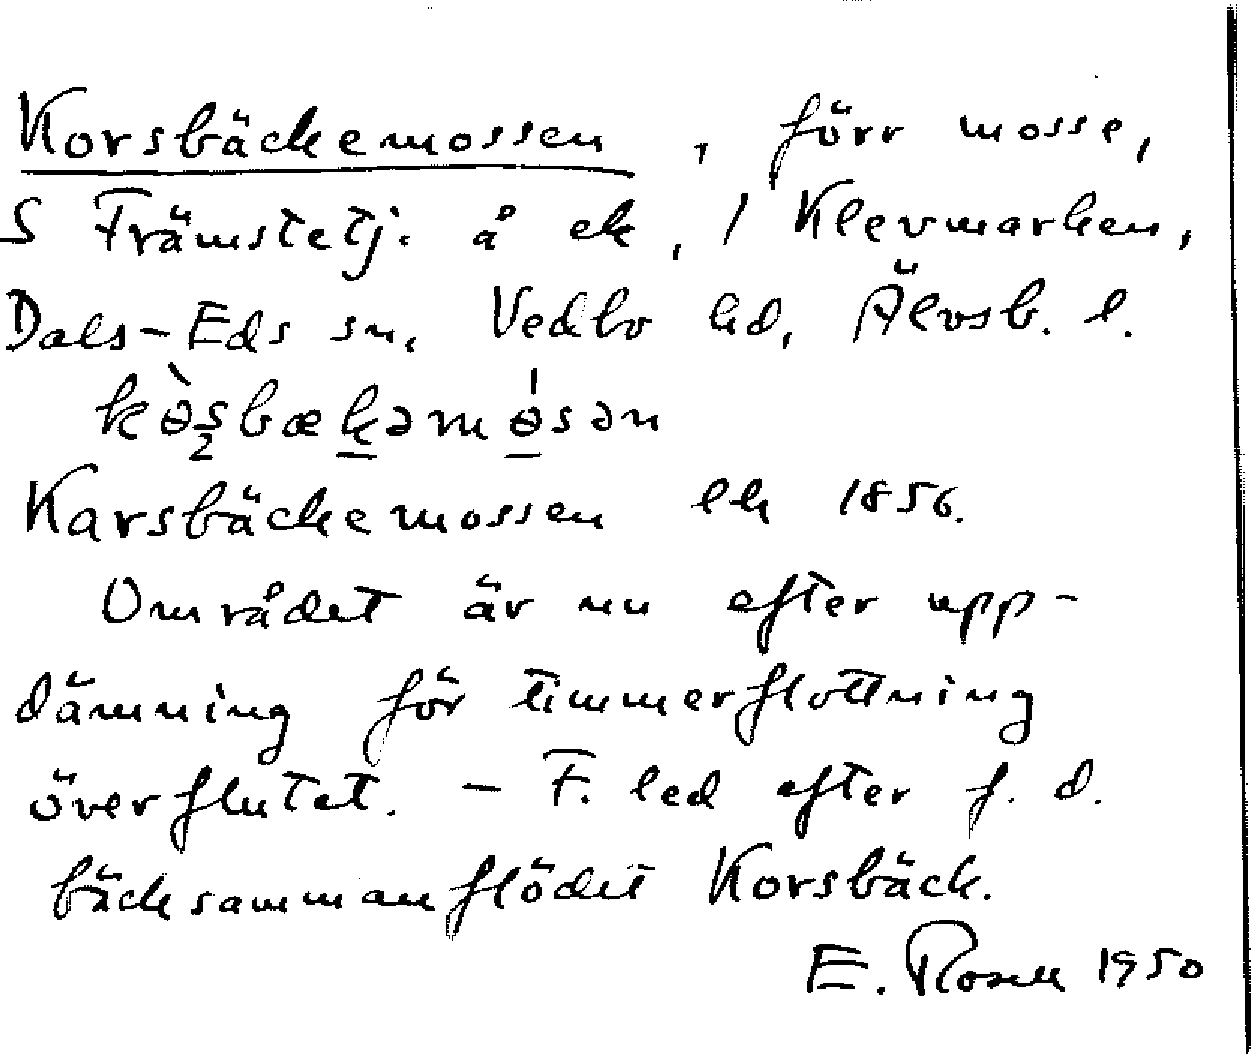 Korsbäckemossen, förr mosse,
S Främstetj. å ek, i Klevmarken,
Dals-Eds sn, Vedbo hd, Älvsb. l.
Karsbäckemossen lh 1856.
Området är nu efter upp-
dämning för timmerflottning
överflutet. - F. led efter f. d.
bäcksammanflödet Korsbäck.
E. Rosell 1950